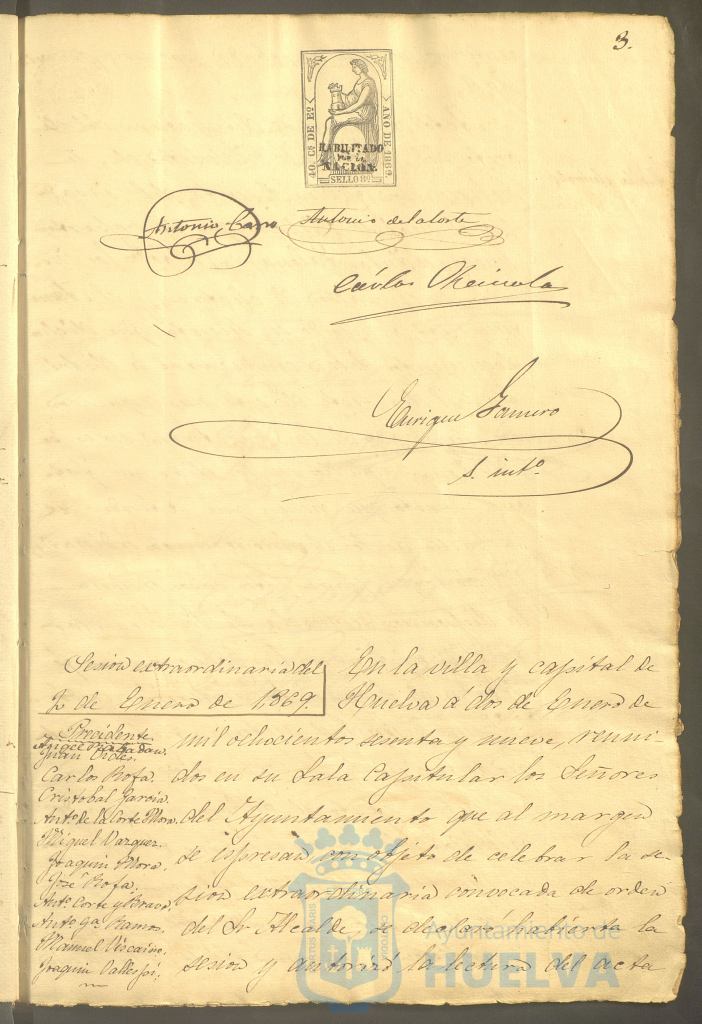 3.
40 Cs DE Eo
AÑO DE 1869
HABILITADO
POR LA
NACION.
SELLO 8º
Antonio Cano
Antonio de la Corte
Cárlos
Enrique
S. intº
Sesion extraordinaria del
2 de Enero de 1,869.
Presidente
Juan Vides.
Carlos Rofa.
Cristobal Garcia.
Antº de la Corte Mora.
Miguel Vazquez.
Joaquin Mora.
José Rofa.
Antº Corte y Bravo.
Antº Gª Ramos.
Manuel Viscaino.
Joaquin
En la villa y capital de
Huelva á dos de Enero de
mil ochocientos sesenta y nueve, reuni-
dos en su Sala Capitular los Señores
del Ayuntamiento que al margen
se espresan con objeto de celebrar la se-
sion extraordinaria convocada de orden
del Sr Alcalde, se declaró habierta la
sesion y autorizó la lectura del acta
Ayuntamiento de
HUELVA